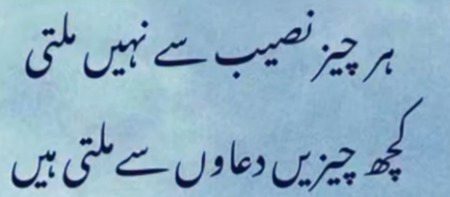 ہر چیز نصیب سے نہیں ملتی
کچھ چیزیں دعاوں سے ملتی ہیں